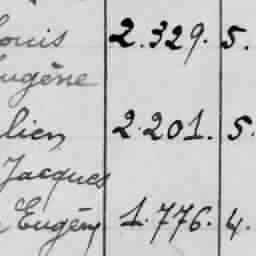 ouis 2.329. 5.
ugène
lien 2.201. 5.
Jacques
Eugény 1.776. 4.